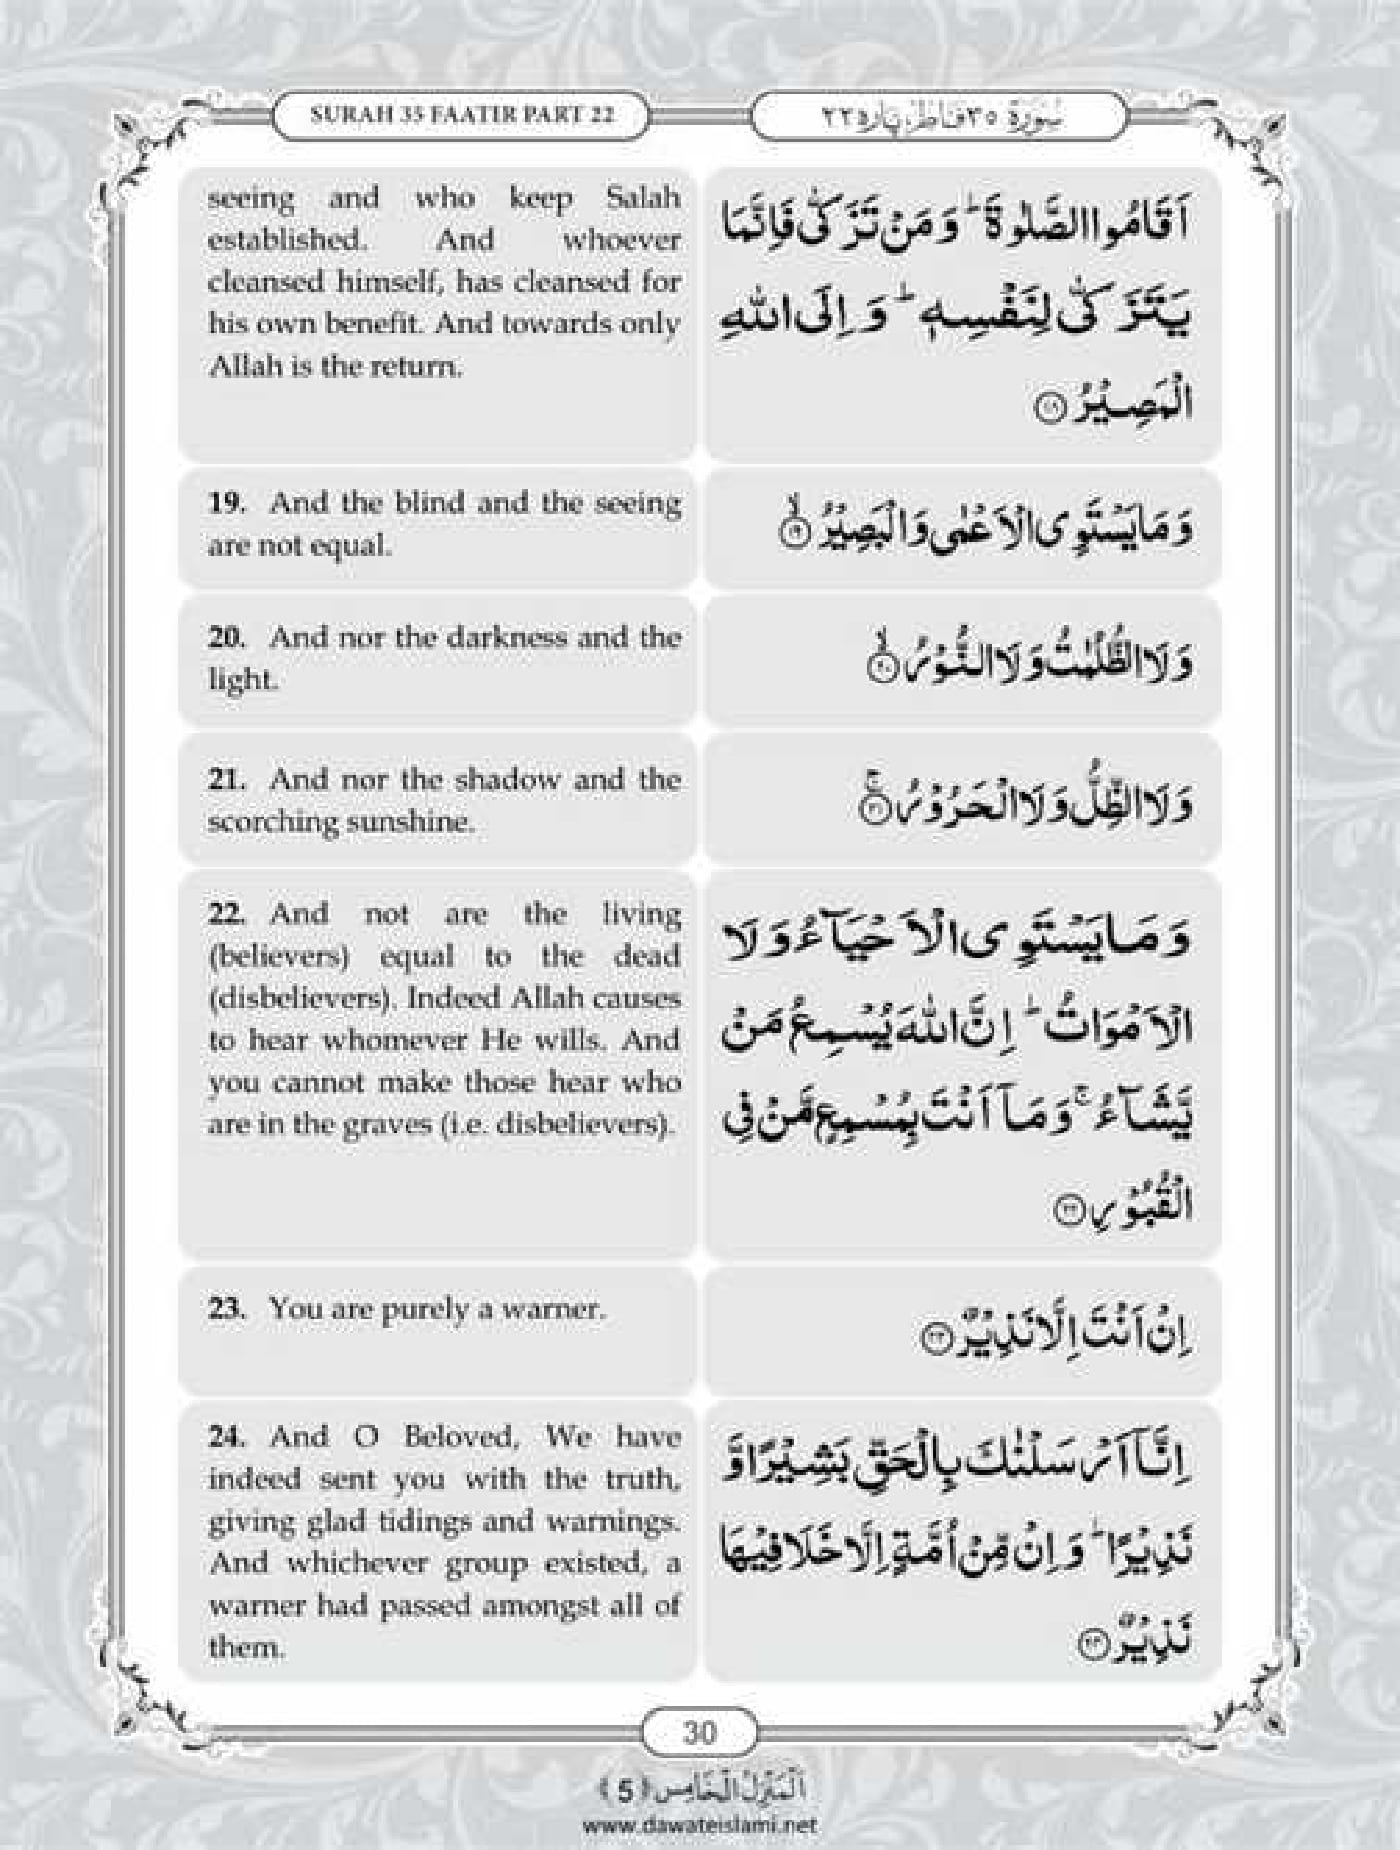 SURAH 35 FAATIR PART 22
سُوْرَةُ ٣٥ فَاطِر، پارہ ٢٢
seeing and who keep Salah
established. And whoever
cleansed himself, has cleansed for
his own benefit. And towards only
Allah is the return.
اَقَامُوا الصَّلٰوةَ ؕ وَ مَنْ تَزَكّٰى فَاِنَّمَا
یَتَزَكّٰى لِنَفْسِهٖ ؕ وَ اِلَى اللّٰهِ
الْمَصِیْرُ ﴿۱۸﴾
19. And the blind and the seeing
are not equal.
وَ مَا یَسْتَوِی الْاَعْمٰى وَ الْبَصِیْرُ ﴿ۙ۱۹﴾
20. And nor the darkness and the
light.
وَ لَا الظُّلُمٰتُ وَ لَا النُّوْرُ ﴿ۙ۲۰﴾
21. And nor the shadow and the
scorching sunshine.
وَ لَا الظِّلُّ وَ لَا الْحَرُوْرُ ﴿ۚ۲۱﴾
22. And not are the living
(believers) equal to the dead
(disbelievers). Indeed Allah causes
to hear whomever He wills. And
you cannot make those hear who
are in the graves (i.e. disbelievers).
وَ مَا یَسْتَوِی الْاَحْیَآءُ وَ لَا
الْاَمْوَاتُ ؕ اِنَّ اللّٰهَ یُسْمِعُ مَنْ
یَّشَآءُ ۚ وَ مَاۤ اَنْتَ بِمُسْمِعٍ مَّنْ فِی
الْقُبُوْرِ ﴿۲۲﴾
23. You are purely a warner.
اِنْ اَنْتَ اِلَّا نَذِیْرٌ ﴿۲۳﴾
24. And O Beloved, We have
indeed sent you with the truth,
giving glad tidings and warnings.
And whichever group existed, a
warner had passed amongst all of
them.
اِنَّاۤ اَرْسَلْنٰكَ بِالْحَقِّ بَشِیْرًا وَّ
نَذِیْرًا ؕ وَ اِنْ مِّنْ اُمَّةٍ اِلَّا خَلَا فِیْهَا
نَذِیْرٌ ﴿۲۴﴾
30
اَلْمَنْزِلُ الْخَامِس ﴿5﴾
www.dawateislami.net